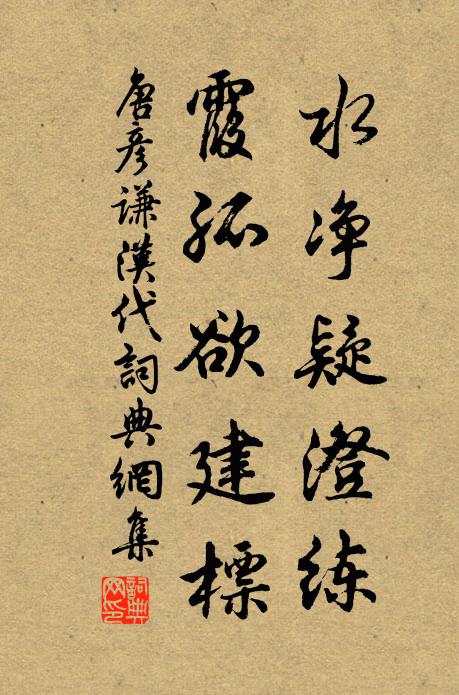 水净疑澄练
霞孤欲建標
唐彦谦漢代詞典網集
詞典網印